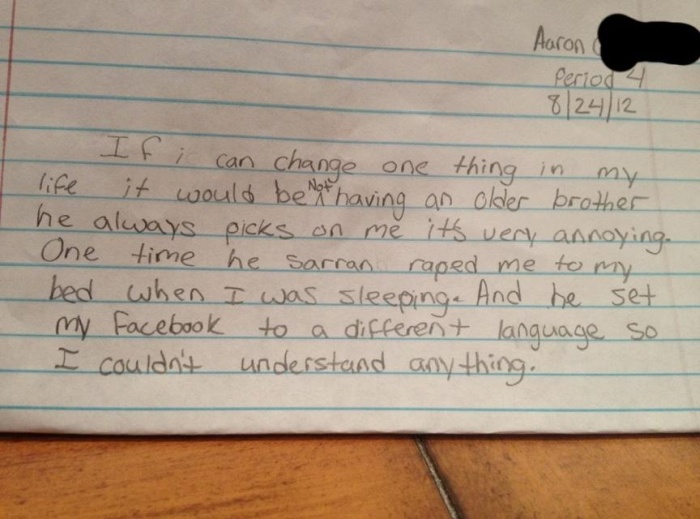 Aaron
Period 4
8/24/12
If i can change one thing in my
life it would be Not having an older brother
he always picks on me it's very annoying.
One time he sarran raped me to my
bed when I was sleeping. And he set
my Facebook to a different language so
I couldn't understand anything.